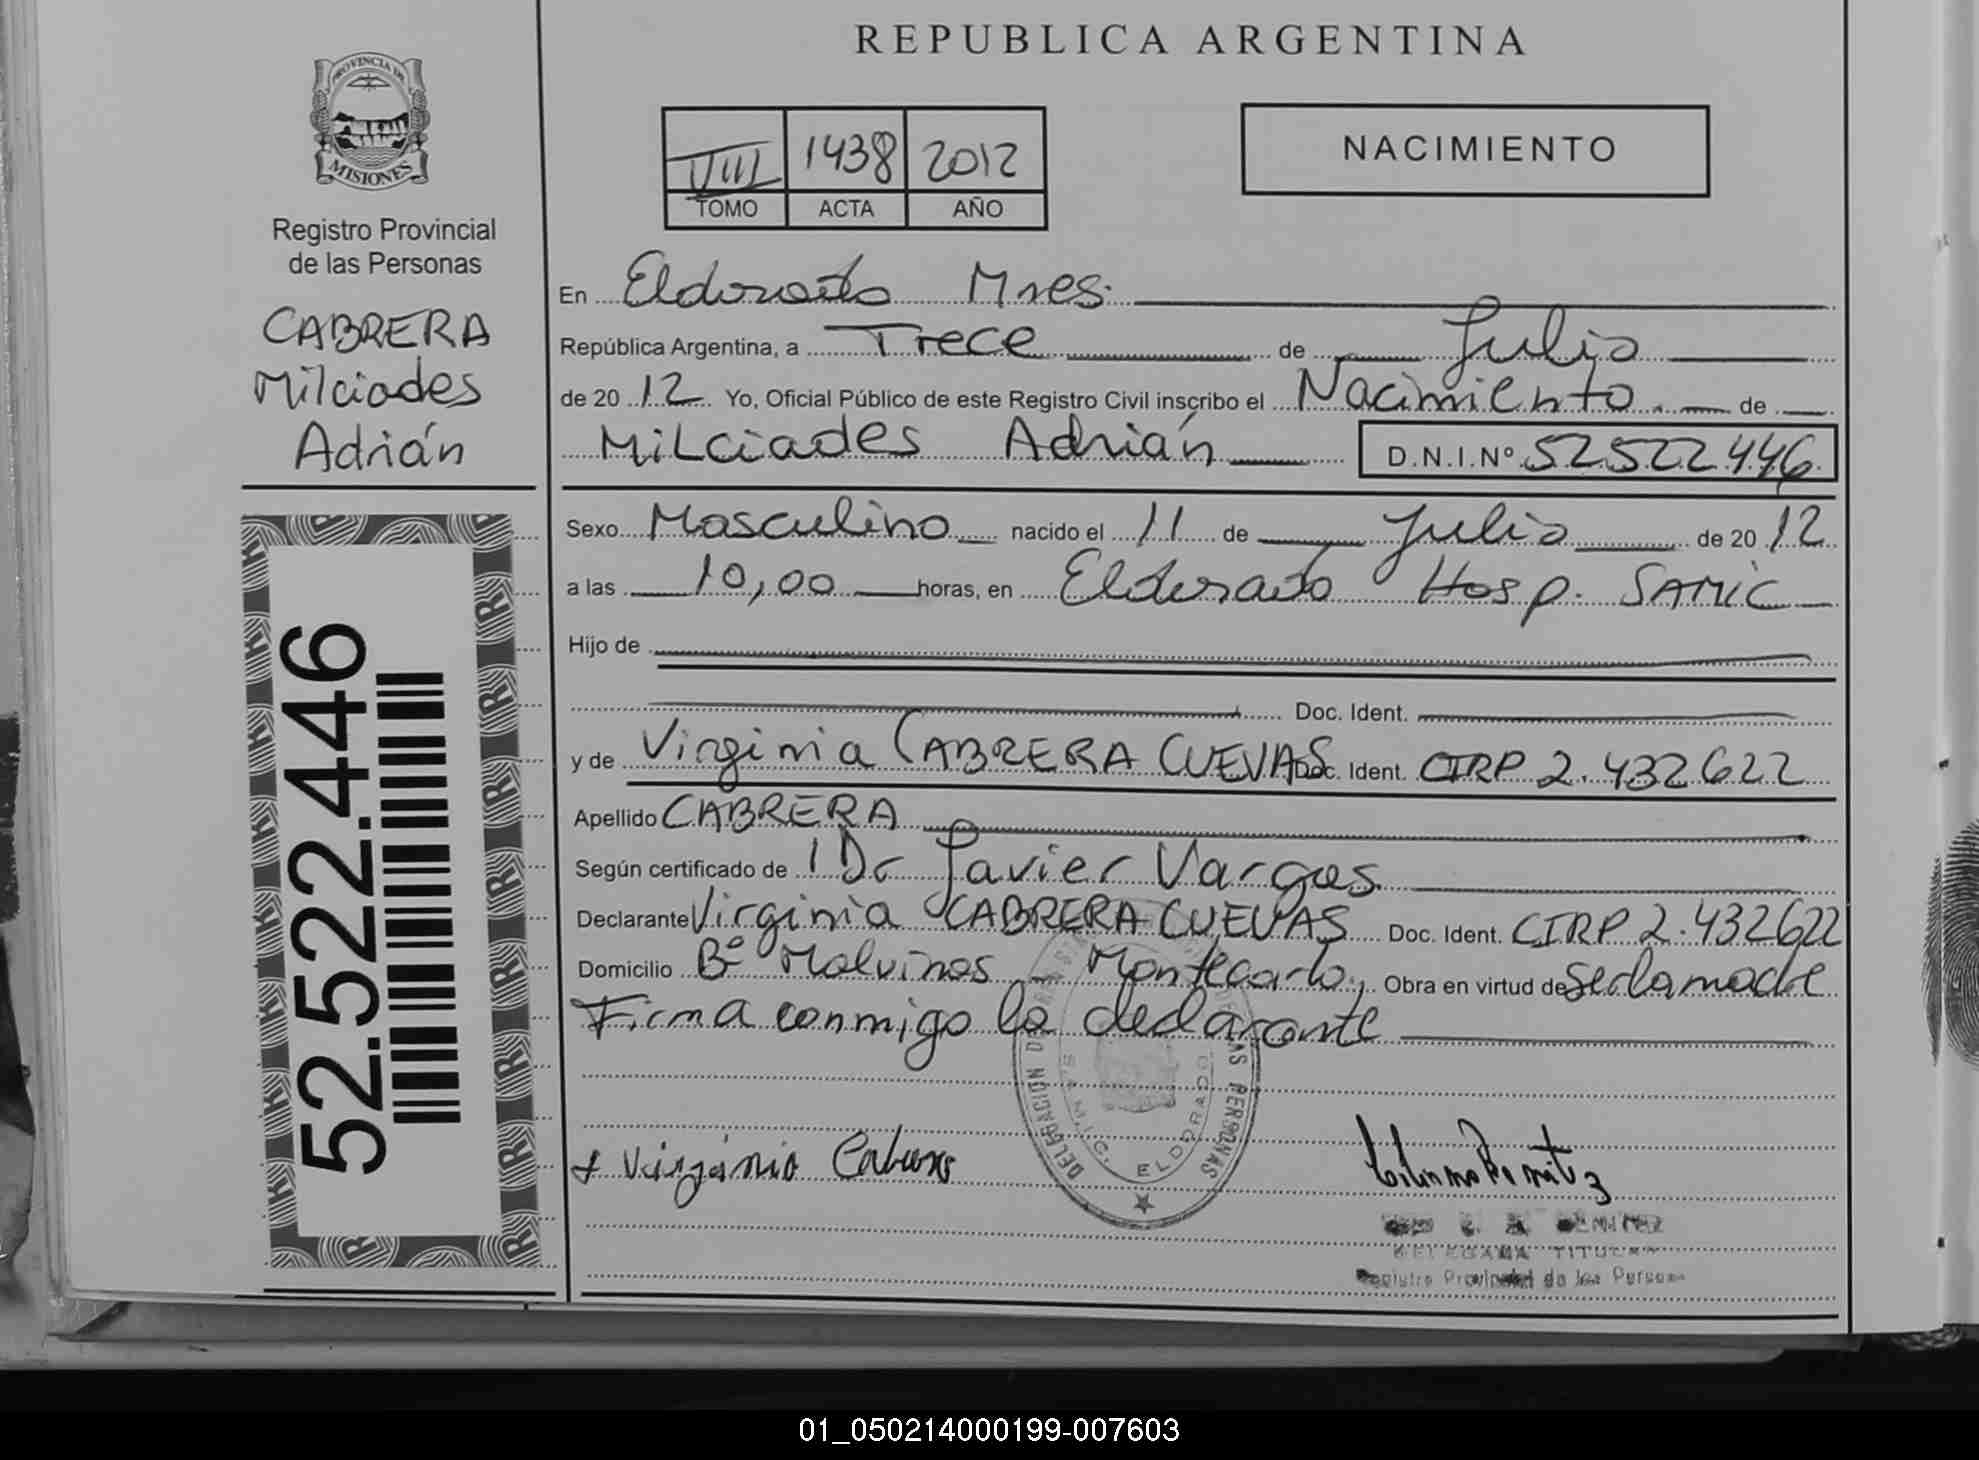 REPUBLICA ARGENTINA
PROVINCIA DE
MISIONES
Registro Provincial
de las Personas
CABRERA
Milciades
Adrián
52.522.446
VIII 1438 2012
TOMO ACTA AÑO
NACIMIENTO
En Eldorado Mnes.
República Argentina, a Trece de Julio
de 2012 Yo, Oficial Público de este Registro Civil inscribo el Nacimiento de
Milciades Adrián D.N.I.Nº 52522.446
Sexo Masculino nacido el 11 de Julio de 2012
a las 10,00 horas, en Eldorado Hosp. SAMIC
Hijo de
Doc. Ident.
y de Virginia CABRERA CUEVAS Doc. Ident. CIRP 2.432622
Apellido CABRERA
Según certificado de 1 Dr Javier Vargas
Declarante Virginia CABRERA CUEVAS Doc. Ident. CIRP 2.432622
Domicilio Bº Malvinas Montecarlo, Obra en virtud de ser la madre
Firma conmigo la declarante
Virginia Cabrera
DELEGACION DE LAS PERSONAS
S.A.M.I.C. ELDORADO
DELEGADA TITULAR
Registro Provincial de las Personas
01_050214000199-007603